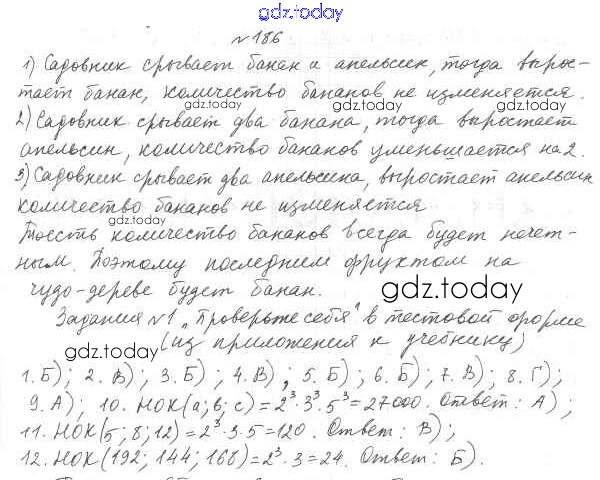 gdz.today
№186
1) Садовник срывает банан и апельсин, тогда вырос-
тает банан, количество бананов не изменяется.
gdz.today
gdz.today
2) Садовник срывает два банана, тогда выростает
апельсин, количество бананов уменьшается на 2.
3) Садовник срывает два апельсина, выростает апельсин
количество бананов не изменяется.
gdz.today
Тоесть количество бананов всегда будет нечет-
ным. Поэтому последним фруктом на
чудо-дереве будет банан.
gdz.today
Задания №1 „Проверьте себя" в тестовой форме
(из приложения к учебнику)
gdz.today
1. Б); 2. В); 3. Б); 4. В); 5. Б); 6. Б); 7. В); 8. Г);
9. А); 10. НОК(а; в; с) = 2³ 3³ · 5³ = 27000. Ответ: А);
11. НОК(5; 8; 12) = 2³ · 3 · 5 = 120. Ответ: В);
gdz.today
12. НОК(192; 144; 168) = 2³ · 3 = 24. Ответ: Б).